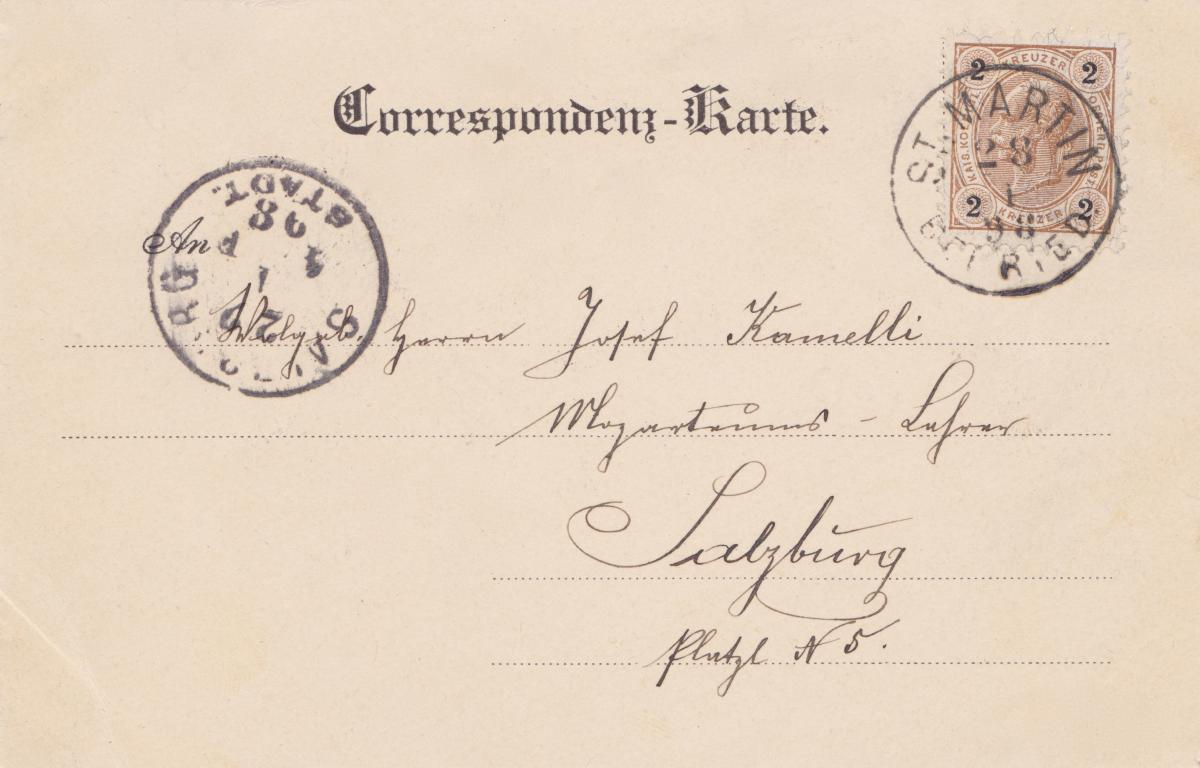 Correspondenz-Karte.
2 KREUZER 2
KAIS. KÖN. OESTERR. POST.
2 KREUZER 2
ST. MARTIN
28
1
98
BEI RIED
SALZBURG STADT.
98
1
An
Wolgeb. Herrn Josef Kamelli
Mozarteums - Lehrer
Salzburg
Platzl N 5.